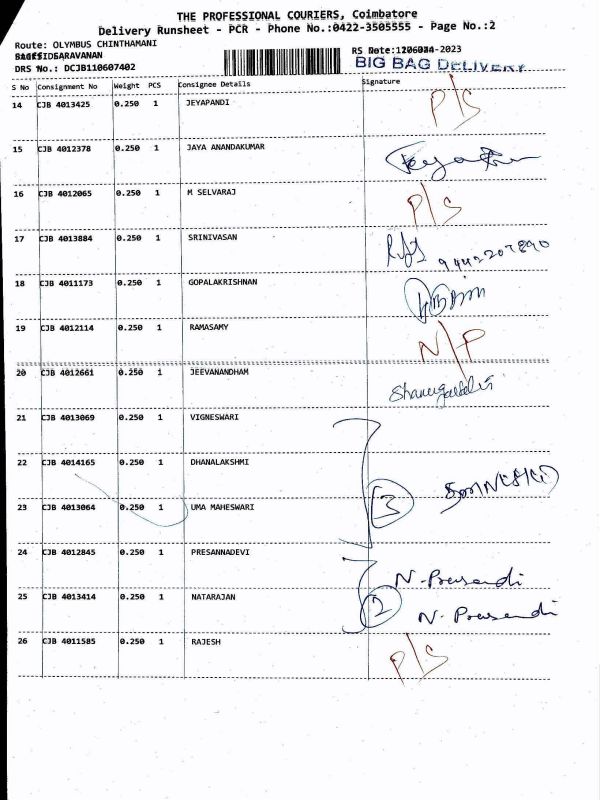 THE PROFESSIONAL COURIERS, Coimbatore
Delivery Runsheet - PCR - Phone No.:0422-3505555 - Page No.:2
Route: OLYMBUS CHINTHAMANI
RS Date:
DRS No.: DCJB110607402
BIG BAG DELIVERY
S No Consignment No Weight PCS Consignee Details Signature
14 CJB 4013425 0.250 1 JEYAPANDI P/S
15 CJB 4012378 0.250 1 JAYA ANANDAKUMAR
16 CJB 4012065 0.250 1 M SELVARAJ P/S
17 CJB 4013884 0.250 1 SRINIVASAN
18 CJB 4011173 0.250 1 GOPALAKRISHNAN
19 CJB 4012114 0.250 1 RAMASAMY N/P
20 CJB 4012661 0.250 1 JEEVANANDHAM
21 CJB 4013069 0.250 1 VIGNESWARI
22 CJB 4014165 0.250 1 DHANALAKSHMI
23 CJB 4013064 0.250 1 UMA MAHESWARI 3
24 CJB 4012845 0.250 1 PRESANNADEVI N-Prasandi
25 CJB 4013414 0.250 1 NATARAJAN 2 N-Prasandi
26 CJB 4011585 0.250 1 RAJESH P/S